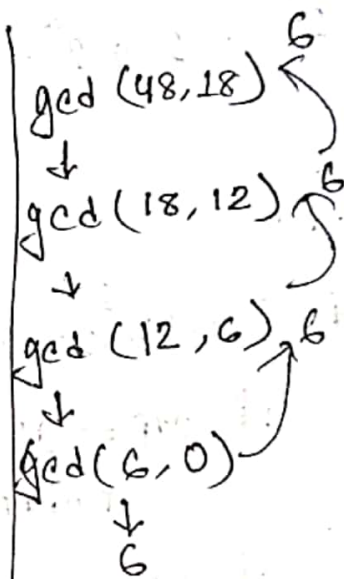 6
gcd (48,18)
↓
gcd (18, 12) 6
↓
gcd (12, 6) 6
↓
gcd (6, 0)
↓
6